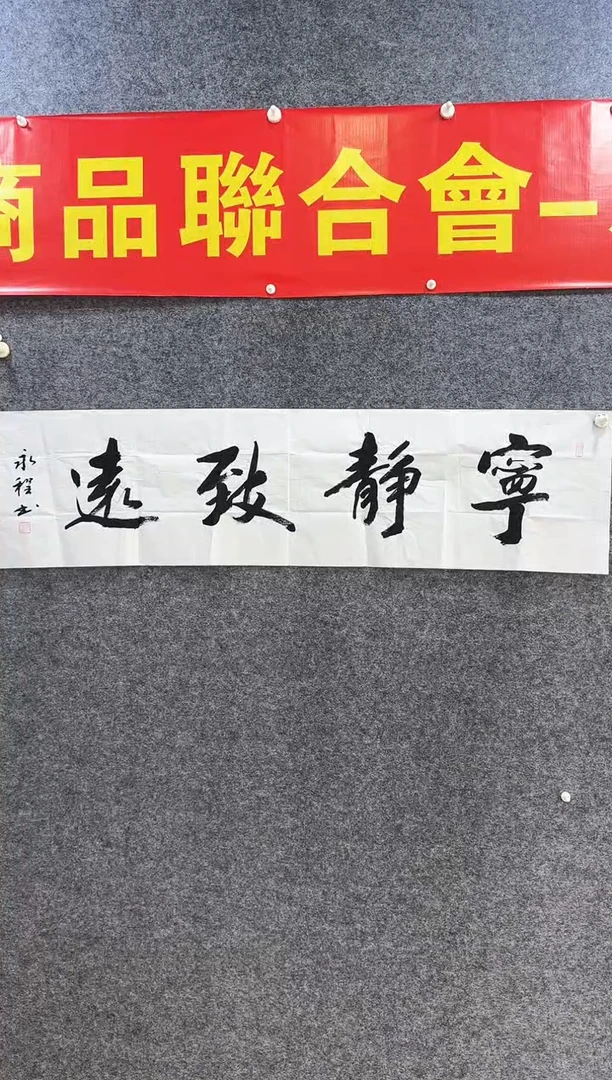 商品聯合會-
寧靜致遠
永程书